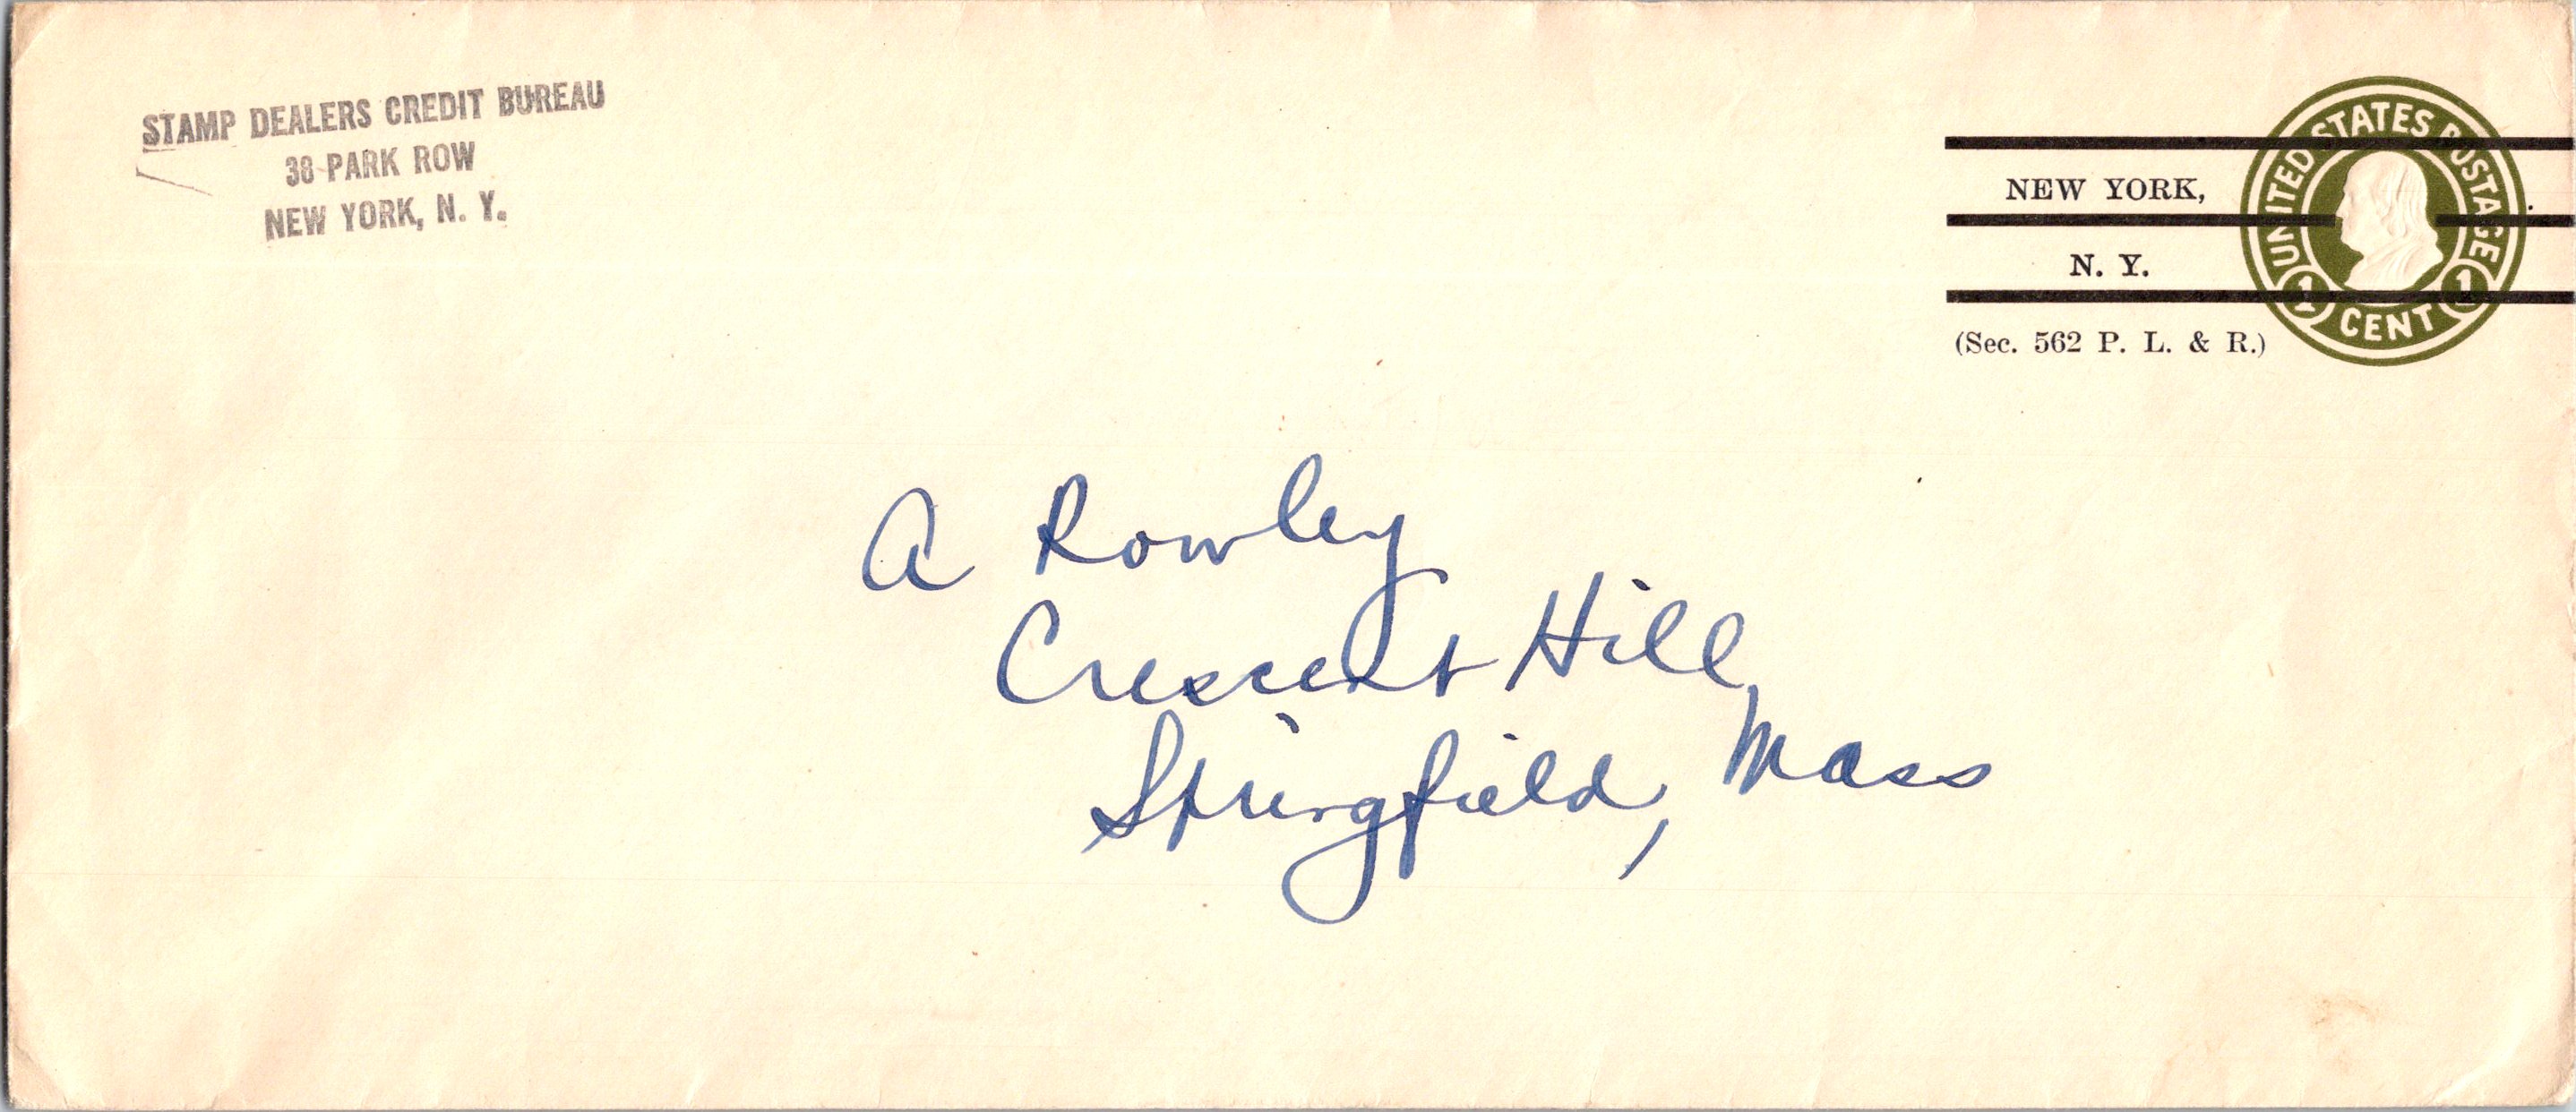 STAMP DEALERS CREDIT BUREAU
38 PARK ROW
NEW YORK, N. Y.
UNITED STATES POSTAGE
1 CENT 1
NEW YORK,
N. Y.
(Sec. 562 P. L. & R.)
A Rowley
Crescent Hill,
Springfield, Mass